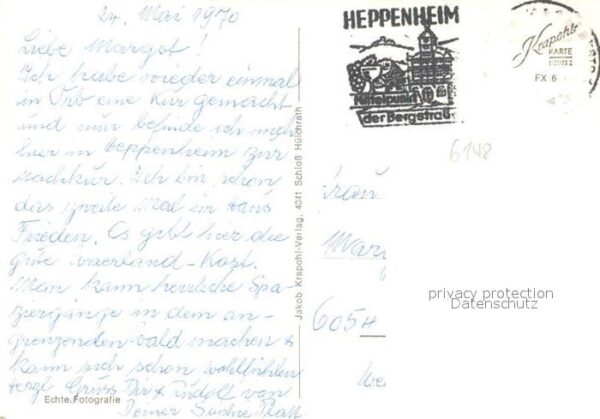 24. Mai 1970
Liebe Margot!
Ich habe wieder einmal
in Orb eine Kur gemacht
und nur befinde ich mich
hier in Heppenheim zur
Nachkur. Ich bin schon
das zweite Mal in Haus
Frieden. Es gibt hier die
gute Waerland-Kost.
Man kann herrliche Spa-
ziergänge in dem an-
grenzenden Wald machen &
kann sich schon wohlfühlen
Herzl. Grüss Dir & Rudolf von
Deiner
Echte Fotografie
Jakob Krapohl-Verlag, 4041 Schloß Hülchrath
HEPPENHEIM
Mittelpunkt
der Bergstraße
Krapohl
KARTE
FX 6
6148
Frau
Marg
605
We
privacy protection
Datenschutz